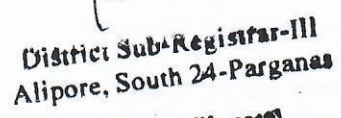 District Sub-Registrar-III
Alipore, South 24-Parganas